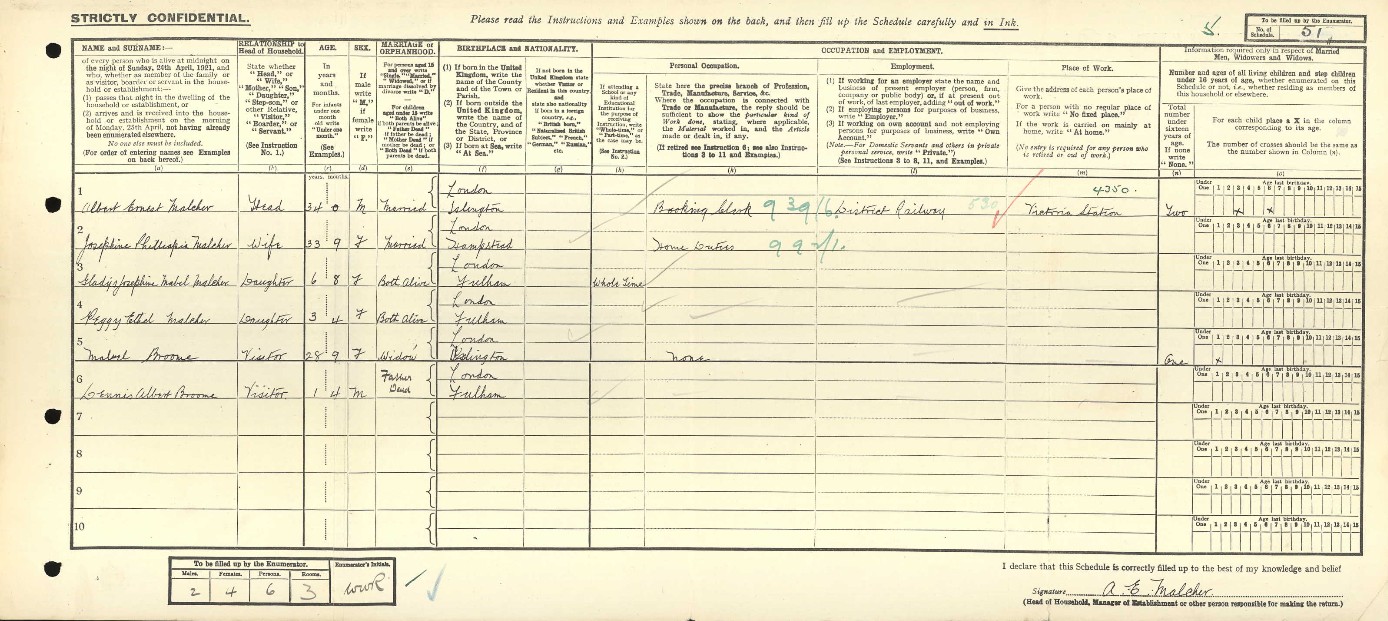 STRICTLY CONFIDENTIAL.
Please read the Instructions and Examples shown on the back, and then fill up the Schedule carefully and in Ink.
5.
To be filled up by the Enumerator.
No. of Schedule. 51
NAME and SURNAME:—
of every person who is alive at midnight on the night of Sunday, 24th April, 1921, and who, whether as member of the family or as visitor, boarder or servant in the household or establishment:—
(1) passes that night in the dwelling of the household or establishment, or
(2) arrives and is received into the household or establishment on the morning of Monday, 25th April, not having already been enumerated elsewhere.
No one else must be included.
(For order of entering names see Examples on back hereof.)
(a)
RELATIONSHIP to Head of Household.
State whether "Head," or "Wife," "Mother," "Son," "Daughter," "Step-son," or other Relative, "Visitor," "Boarder," or "Servant."
(See Instruction No. 1.)
(b)
AGE.
In years and months.
For infants under one month old write "Under one month."
(See Examples.)
(c)
SEX.
If male write "M," if female write "F."
(d)
MARRIAGE or ORPHANHOOD.
(e)
BIRTHPLACE and NATIONALITY.
(1) If born in the United Kingdom, write the name of the County and of the Town or Parish.
(2) If born outside the United Kingdom, write the name of the Country, and of the State, Province or District.
(3) If born at Sea, write "At Sea."
(f)
(g)
(h)
OCCUPATION and EMPLOYMENT.
Personal Occupation.
State here the precise branch of Profession, Trade, Manufacture, Service, &c.
Where the occupation is connected with Trade or Manufacture, the reply should be sufficient to show the particular kind of Work done, stating, where applicable, the Material worked in, and the Article made or dealt in, if any.
(If retired see Instruction 6; see also Instructions 3 to 11 and Examples.)
(k)
Employment.
(1) If working for an employer state the name and business of present employer (person, firm, company or public body) or, if at present out of work, of last employer, adding "out of work."
(2) If employing persons for purposes of business, write "Employer."
(3) If working on own account and not employing persons for purposes of business, write "Own Account."
(Note.—For Domestic Servants and others in private personal service, write "Private.")
(See Instructions 3 to 8, 11, and Examples.)
(l)
Place of Work.
Give the address of each person's place of work.
For a person with no regular place of work write "No fixed place."
If the work is carried on mainly at home, write "At home."
(No entry is required for any person who is retired or out of work.)
(m)
Information required only in respect of Married Men, Widowers and Widows.
Number and ages of all living children and step children under 16 years of age, whether enumerated on this Schedule or not, i.e., whether residing as members of this household or elsewhere.
Total number under sixteen years of age. If none write "None."
(n)
For each child place a X in the column corresponding to its age.
The number of crosses should be the same as the number shown in Column (n).
(o)
years. months.
1 Albert Ernest Malcher Head 34 0 M Married London Islington Booking Clerk 939/6 District Railway 530 Victoria Station 4350. Two x x
2 Josephine Malcher Wife 33 9 F Married London Hampstead Home Duties
3 Gladys Josephine Mabel Malcher Daughter 6 8 F Both Alive London Fulham Whole Time
4 Peggy Ethel Malcher Daughter 3 4 F Both Alive London Fulham
5 Mabel Broome Visitor 28 9 F Widow London Islington None One x
6 Dennis Albert Broome Visitor 1 4 M Father Dead London Fulham
7
8
9
10
To be filled up by the Enumerator.
Males. Females. Persons. Rooms.
2 4 6 3
Enumerator's Initials.
WWR
I declare that this Schedule is correctly filled up to the best of my knowledge and belief
Signature A. E. Malcher
(Head of Household, Manager of Establishment or other person responsible for making the return.)